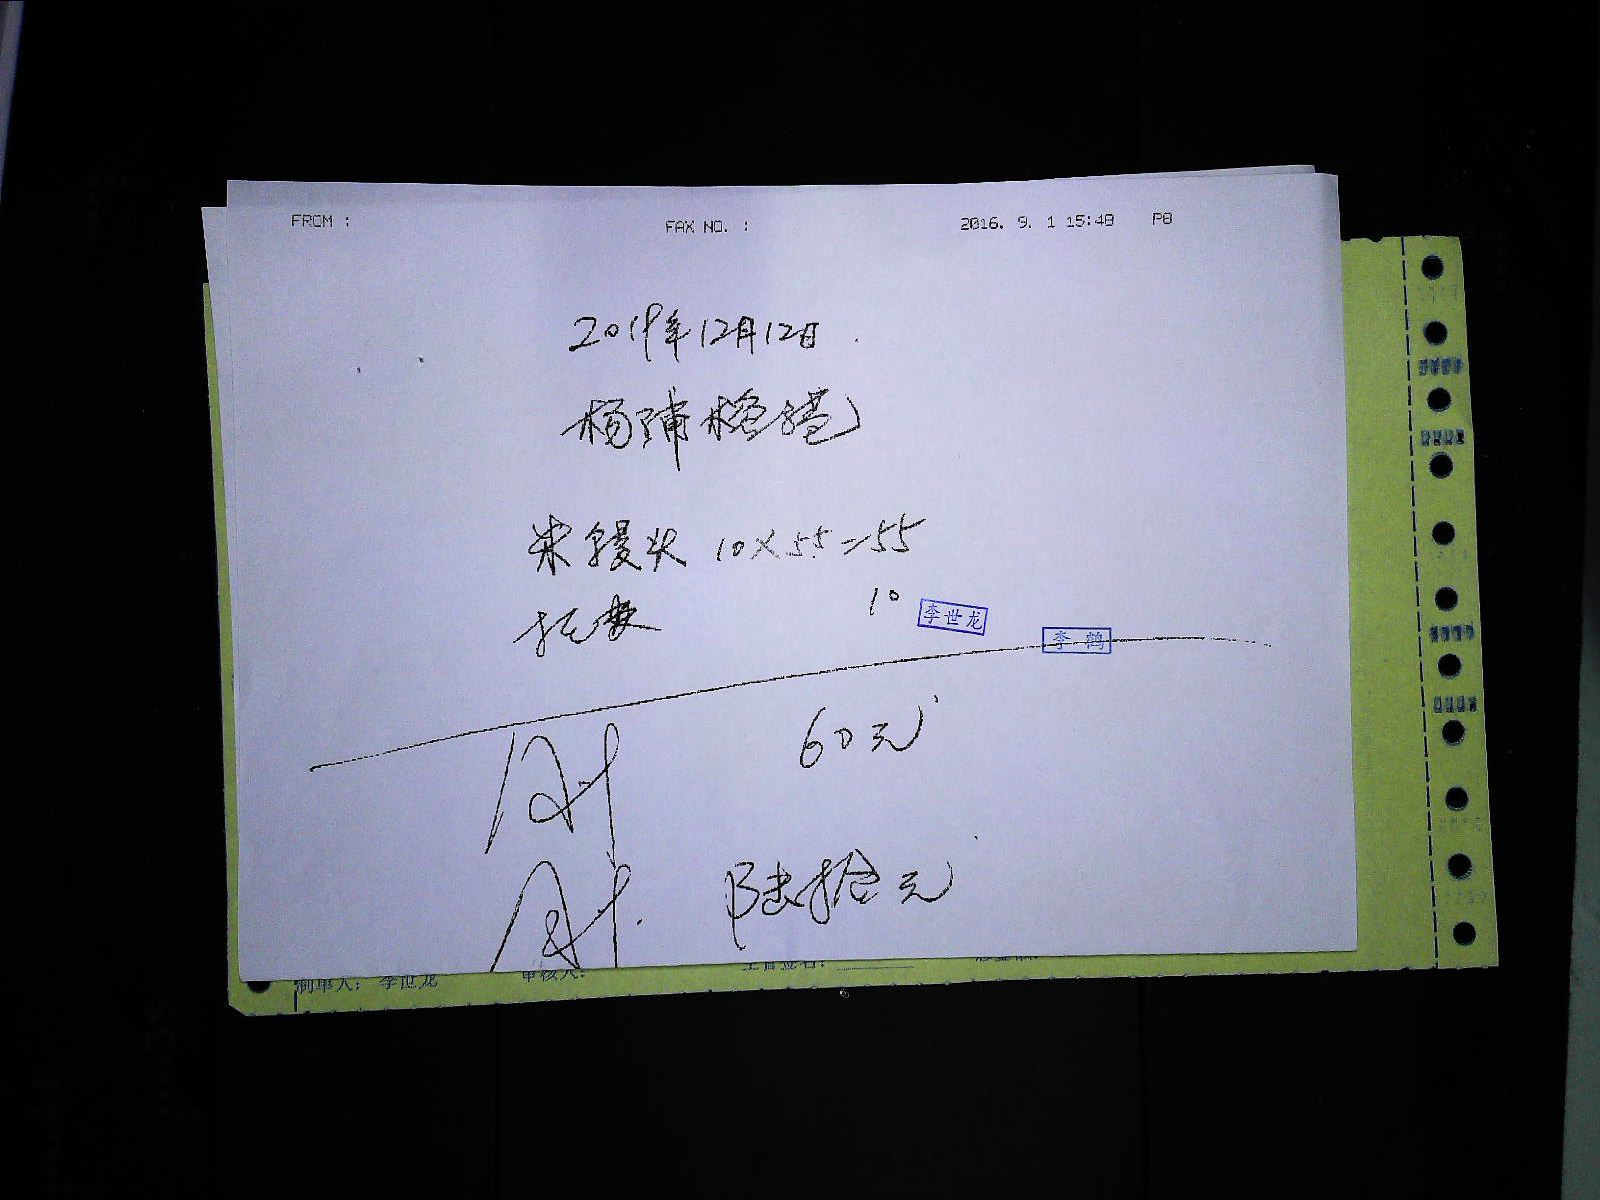 FROM : FAX NO. : 2016. 9. 1 15:48 P8
2019年12月12日
杨浦
米馒头 10×5.5=55
托 10
李世龙
李 鹤
60元
陆拾元
制单人: 李世龙 审核人: